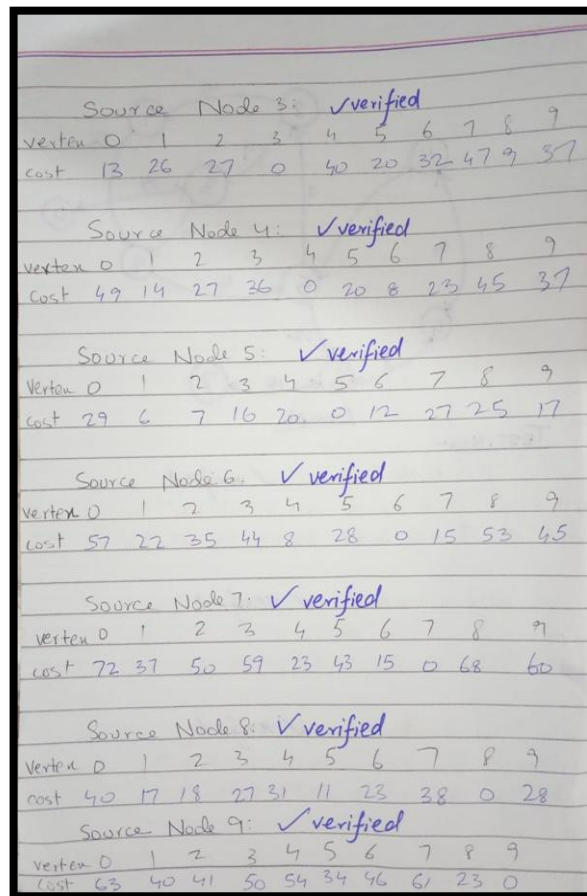 Source Node 3: ✓verified
verten 0 1 2 3 4 5 6 7 8 9
cost 13 26 27 0 40 20 32 47 9 37
Source Node 4: ✓verified
verten 0 1 2 3 4 5 6 7 8 9
cost 49 14 27 36 0 20 8 23 45 37
Source Node 5: ✓verified
Verten 0 1 2 3 4 5 6 7 8 9
cost 29 6 7 16 20 0 12 27 25 17
Source Node 6. ✓verified
verten 0 1 2 3 4 5 6 7 8 9
cost 57 22 35 44 8 28 0 15 53 45
Source Node 7: ✓verified
verten 0 1 2 3 4 5 6 7 8 9
cost 72 37 50 59 23 43 15 0 68 60
Source Node 8: ✓verified
verten 0 1 2 3 4 5 6 7 8 9
cost 40 17 18 27 31 11 23 38 0 28
Source Node 9: ✓verified
verten 0 1 2 3 4 5 6 7 8 9
cost 63 40 41 50 54 34 46 61 23 0